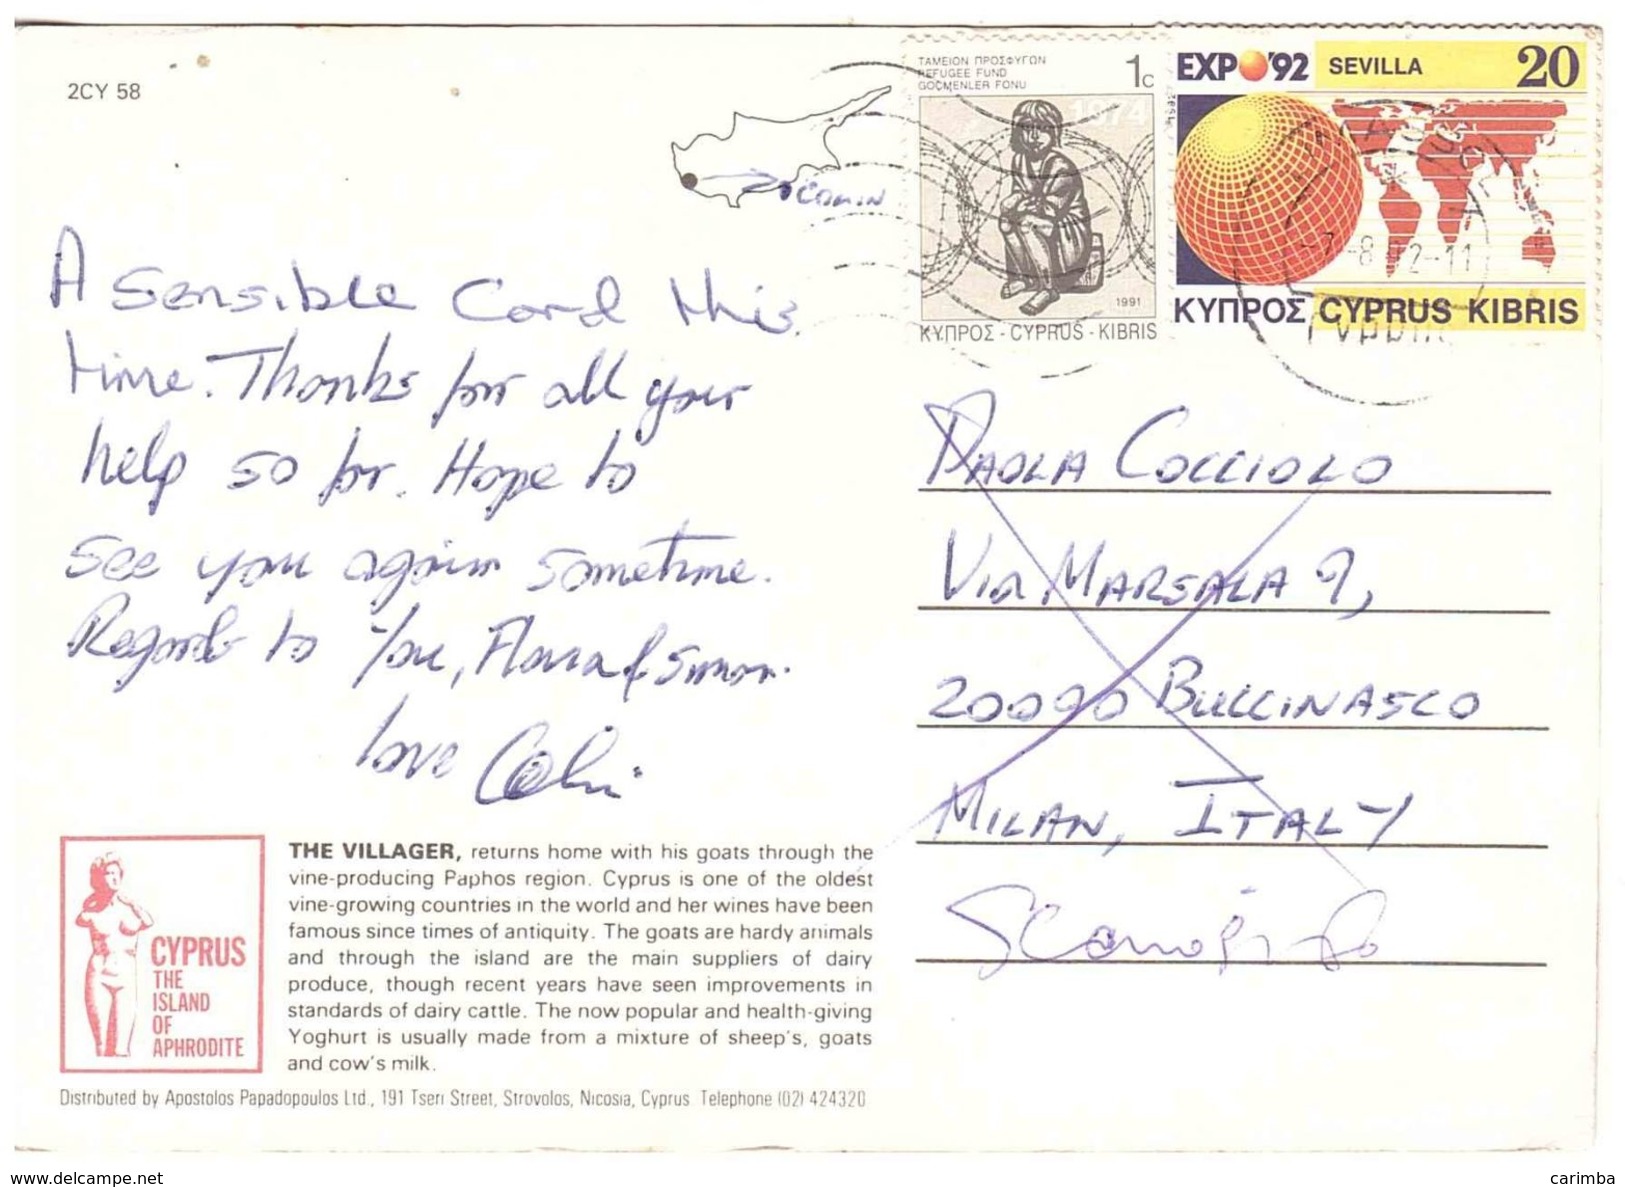 2CY 58
COLIN
ΤΑΜΕΙΟΝ ΠΡΟΣΦΥΓΩΝ
REFUGEE FUND
GÖÇMENLER FONU
1c
1974
1991
ΚΥΠΡΟΣ - CYPRUS - KIBRIS
EXPO'92 SEVILLA 20
1992
ΚΥΠΡΟΣ CYPRUS KIBRIS
A Sensible Card this
time. Thanks for all your
help so far. Hope to
see you again sometime.
Regards to You, Flavia & Simon.
love Colin
PAOLA COCCIOLO
VIA MARSALA 9,
20090 BUCCINASCO
MILAN, ITALY
CYPRUS
THE
ISLAND
OF
APHRODITE
THE VILLAGER, returns home with his goats through the
vine-producing Paphos region. Cyprus is one of the oldest
vine-growing countries in the world and her wines have been
famous since times of antiquity. The goats are hardy animals
and through the island are the main suppliers of dairy
produce, though recent years have seen improvements in
standards of dairy cattle. The now popular and health-giving
Yoghurt is usually made from a mixture of sheep's, goats
and cow's milk.
Distributed by Apostolos Papadopoulos Ltd., 191 Tseri Street, Strovolos, Nicosia, Cyprus Telephone (02) 424320
carimba